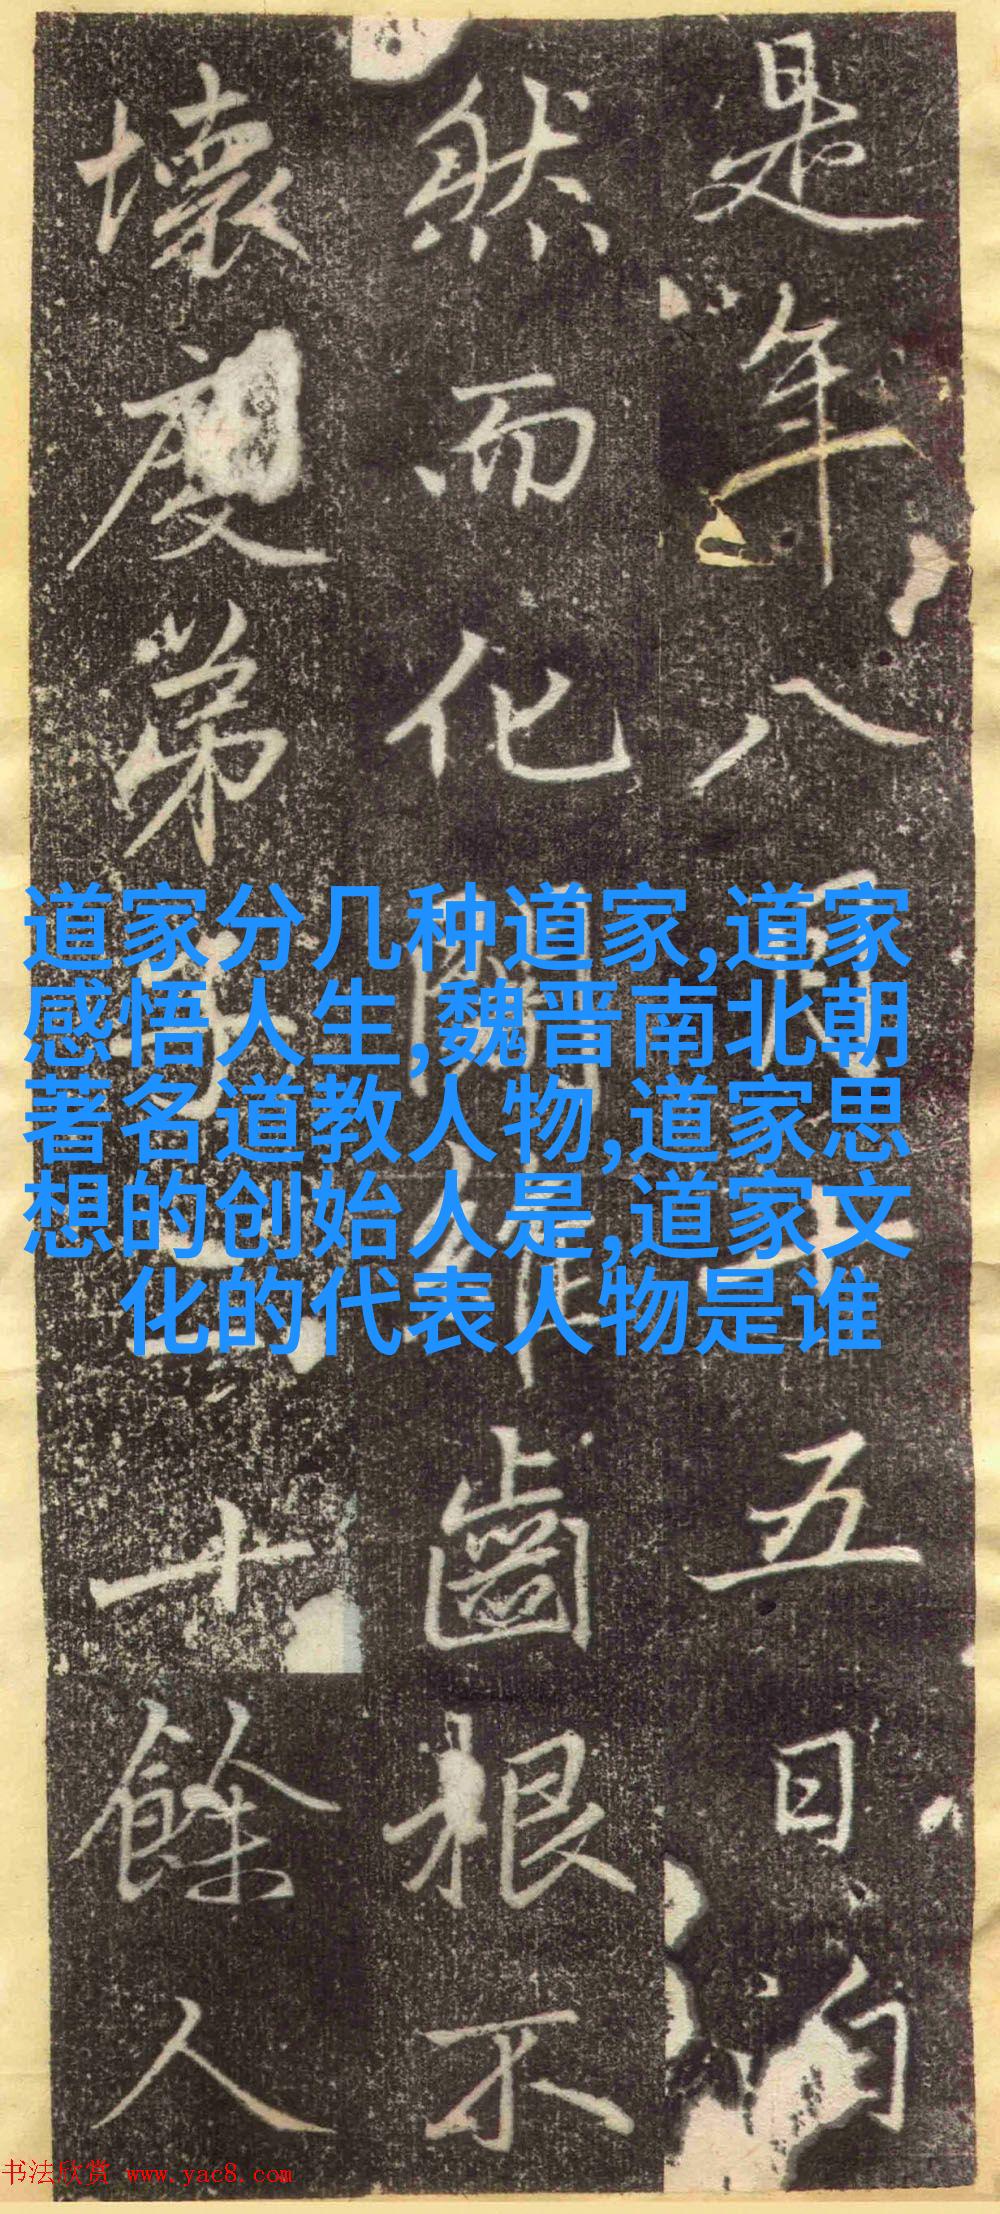 是年八月十五日自
然而化開維齒根不
壞度弟子三十餘人
道家分几种道家,道家
感悟人生,魏晋南北朝
著名道教人物,道家思
想的创始人是,道家文
化的代表人物是谁
书法欣赏 www.yac8.com